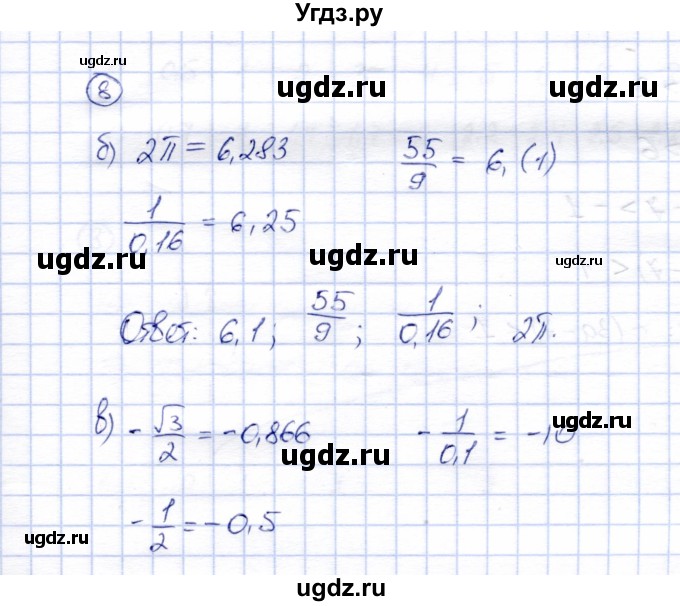 Угдз.ру
ugdz.ru ugdz.ru ugdz.ru
8
б) 2π = 6,283 55/9 = 6,(1)
1/0,16 = 6,25
ugdz.ru ugdz.ru ugdz.ru
Ответ: 6,1; 55/9; 1/0,16; 2π.
в) -√3/2 = -0,866 -1/0,1 = -10
ugdz.ru ugdz.ru
-1/2 = -0,5
ugdz.ru
ugdz.ru